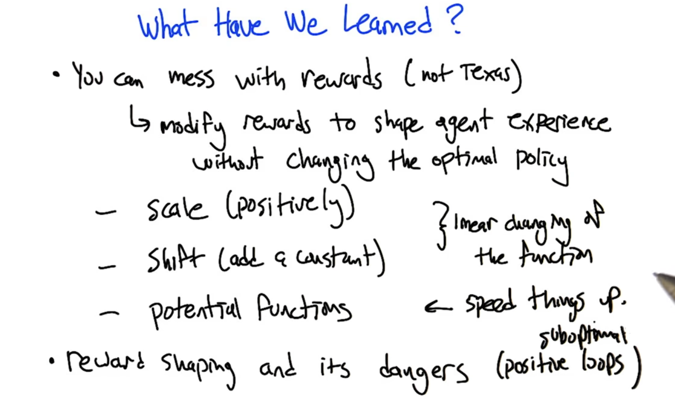 What Have We Learned?
• You can mess with rewards (not Texas)
↳ modify rewards to shape agent experience
without changing the optimal policy
– scale (positively)
– shift (add a constant)
} linear changing of
the function
– potential functions ← speed things up.
suboptimal
• reward shaping and its dangers (positive loops)